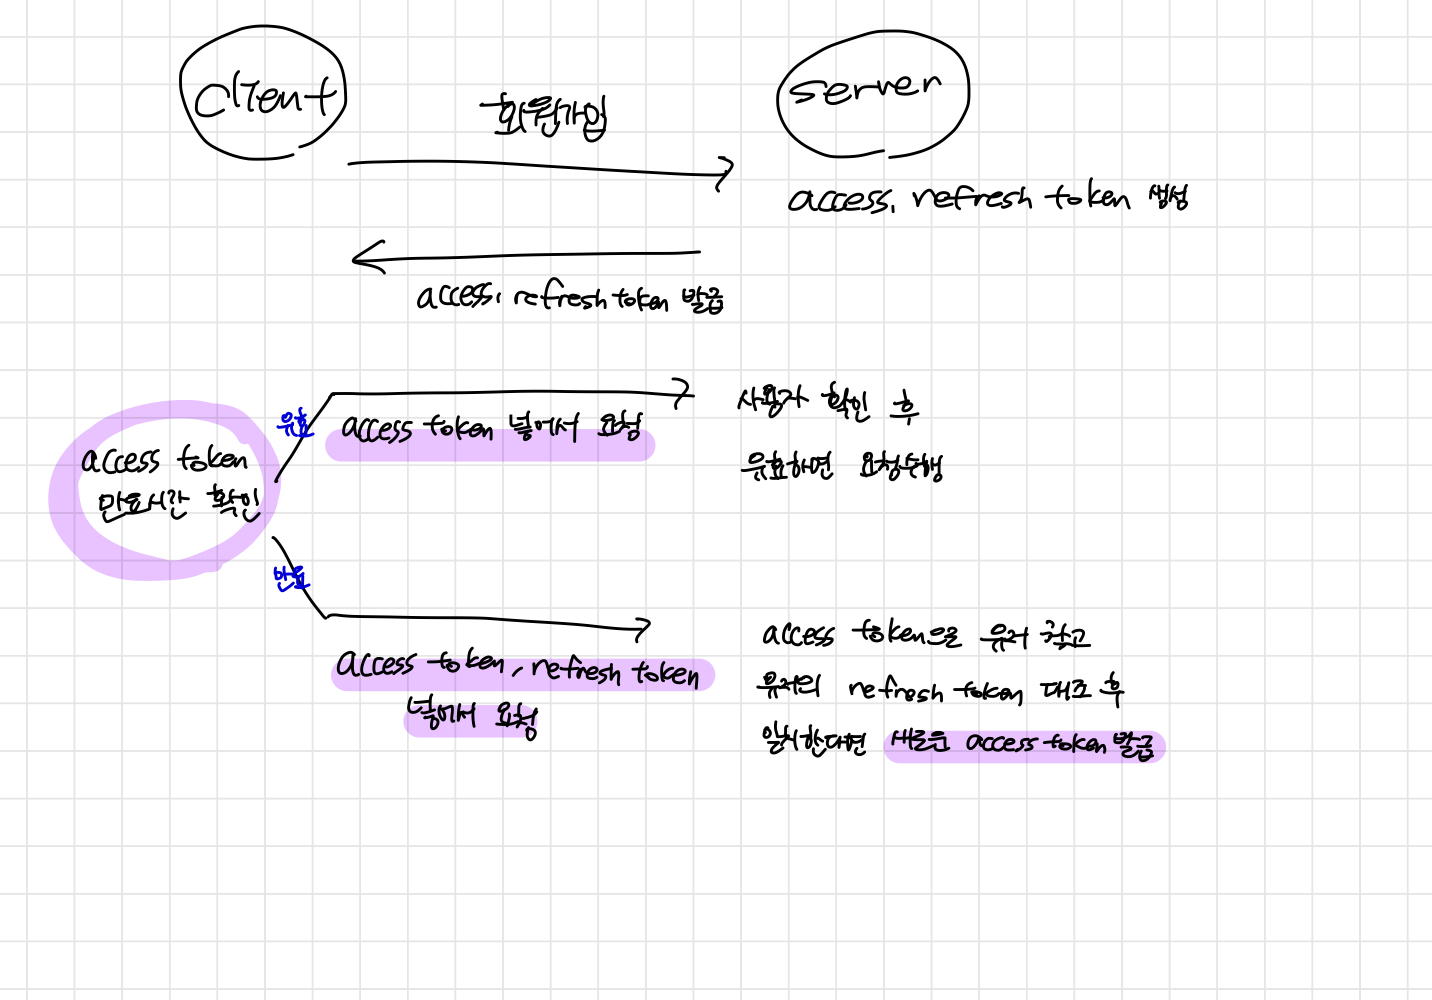 client
server
회원가입
access, refresh token 생성
access, refresh token 발급
유효
access token 넣어서 요청
사용자 확인 후
유효하면 요청수행
access token
만료시간 확인
만료
access token, refresh token
넣어서 요청
access token으로 유저 찾고
유저의 refresh token 대조 후
일치한다면 새로운 access token 발급